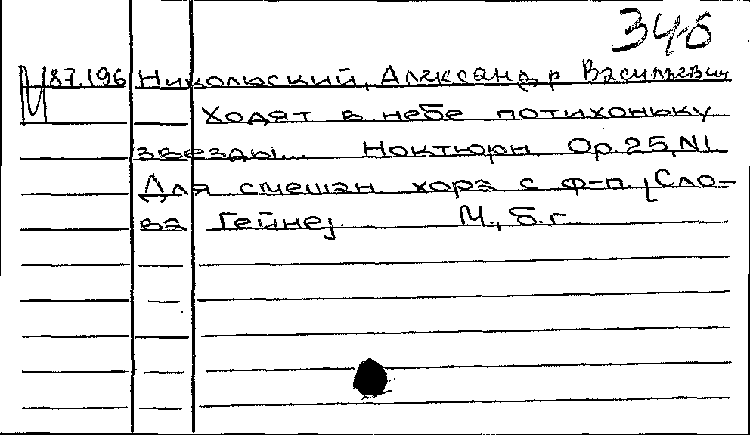 346
М 87.196 Никольский, Александр Васильевич
Ходят в небе потихоньку
звезды... Ноктюрн Op.25,N1
Для смешан. хора с ф-п. [Сло-
ва Гейне]  М., б.г.